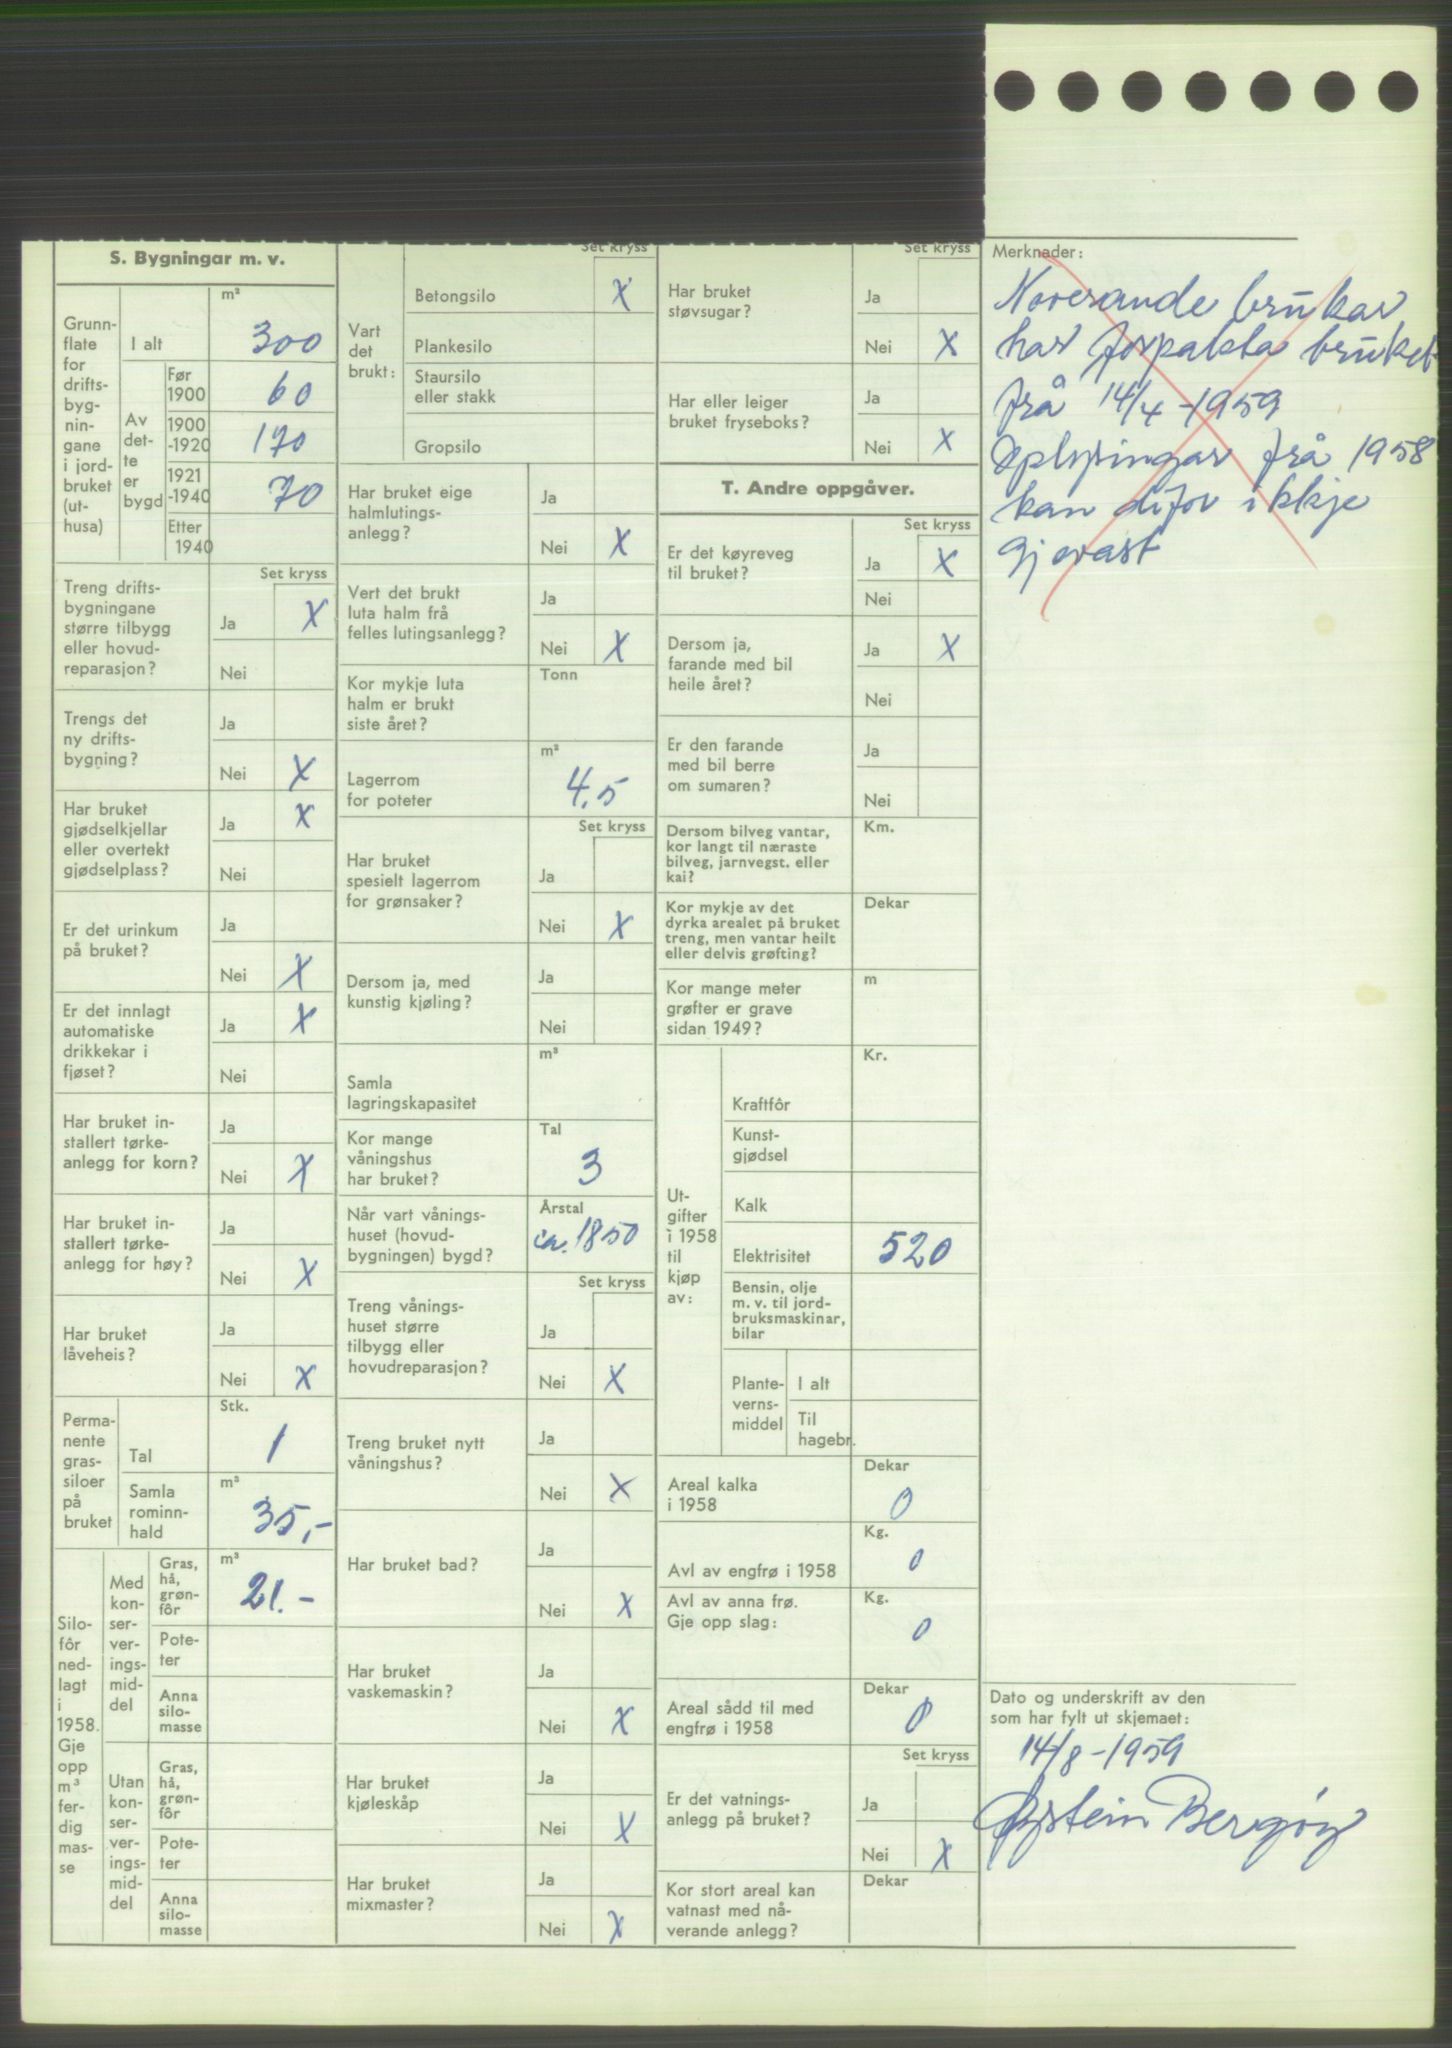 S. Bygningar m. v.
Grunn-
flate
for
drifts-
byg-
nin-
gane
i jord-
bruket
(ut-
husa)
m²
I alt
300
Av
det-
te
er
bygd
Før
1900
60
1900
-1920
170
1921
-1940
70
Etter
1940
Set kryss
Treng drifts-
bygningane
større tilbygg
eller hovud-
reparasjon?
Ja X
Nei
Trengs det
ny drifts-
bygning?
Ja
Nei X
Har bruket
gjødselkjellar
eller overtekt
gjødselplass?
Ja X
Nei
Er det urinkum
på bruket?
Ja
Nei X
Er det innlagt
automatiske
drikkekar i
fjøset?
Ja X
Nei
Har bruket in-
stallert tørke-
anlegg for korn?
Ja
Nei X
Har bruket in-
stallert tørke-
anlegg for høy?
Ja
Nei X
Har bruket
låveheis?
Ja
Nei X
Perma-
nente
gras-
siloer
på
bruket
Stk.
Tal
1
m³
Samla
rominn-
hald
35,-
Silo-
fôr
ned-
lagt
i
1958.
Gje
opp
m³
fer-
dig
mas-
se
Med
kon-
ser-
ver-
ings-
mid-
del
m³
Gras,
hå,
grøn-
fôr
21.-
Pote-
ter
Anna
silo-
masse
Utan
kon-
ser-
ver-
ings-
mid-
del
Gras,
hå,
grøn-
fôr
Pote-
ter
Anna
silo-
masse
Set kryss
Vart
det
brukt:
Betongsilo X
Plankesilo
Staursilo
eller stakk
Gropsilo
Har bruket eige
halmlutings-
anlegg?
Ja
Nei X
Vert det brukt
luta halm frå
felles lutingsanlegg?
Ja
Nei X
Kor mykje luta
halm er brukt
siste året?
Tonn
Lagerrom
for poteter
m³
4,5
Set kryss
Har bruket
spesielt lagerrom
for grønsaker?
Ja
Nei X
Dersom ja, med
kunstig kjøling?
Ja
Nei
Samla
lagringskapasitet
m³
Kor mange
våningshus
har bruket?
Tal
3
Når vart vånings-
huset (hovud-
bygningen) bygd?
Årstal
ca. 1850
Set kryss
Treng vånings-
huset større
tilbygg eller
hovudreparasjon?
Ja
Nei X
Treng bruket nytt
våningshus?
Ja
Nei X
Har bruket bad?
Ja
Nei X
Har bruket
vaskemaskin?
Ja
Nei X
Har bruket
kjøleskåp
Ja
Nei X
Har bruket
mixmaster?
Ja
Nei X
Set kryss
Har bruket
støvsugar?
Ja
Nei X
Har eller leiger
bruket fryseboks?
Ja
Nei X
T. Andre oppgåver.
Set kryss
Er det køyreveg
til bruket?
Ja X
Nei
Dersom ja,
farande med bil
heile året?
Ja X
Nei
Er den farande
med bil berre
om sumaren?
Ja
Nei
Dersom bilveg vantar,
kor langt til næraste
bilveg, jarnvegst. eller
kai?
Km.
Kor mykje av det
dyrka arealet på bruket
treng, men vantar heilt
eller delvis grøfting?
Dekar
Kor mange meter
grøfter er grave
sidan 1949?
m
Ut-
gifter
i 1958
til
kjøp
av:
Kr.
Kraftfôr
Kunst-
gjødsel
Kalk
Elektrisitet 520
Bensin, olje
m. v. til jord-
bruksmaskinar,
bilar
Plante-
verns-
middel
I alt
Til
hagebr.
Areal kalka
i 1958
Dekar
0
Avl av engfrø i 1958
Kg.
0
Avl av anna frø.
Gje opp slag:
Kg.
0
Areal sådd til med
engfrø i 1958
Dekar
0
Set kryss
Er det vatnings-
anlegg på bruket?
Ja
Nei X
Kor stort areal kan
vatnast med nå-
verande anlegg?
Dekar
Merknader:
Noverande brukar
har forpakta bruket
frå 14/4-1959
Oplysingar frå 1958
kan difor ikkje
gjevast
Dato og underskrift av den
som har fylt ut skjemaet:
14/8-1959
Øystein Bergøy